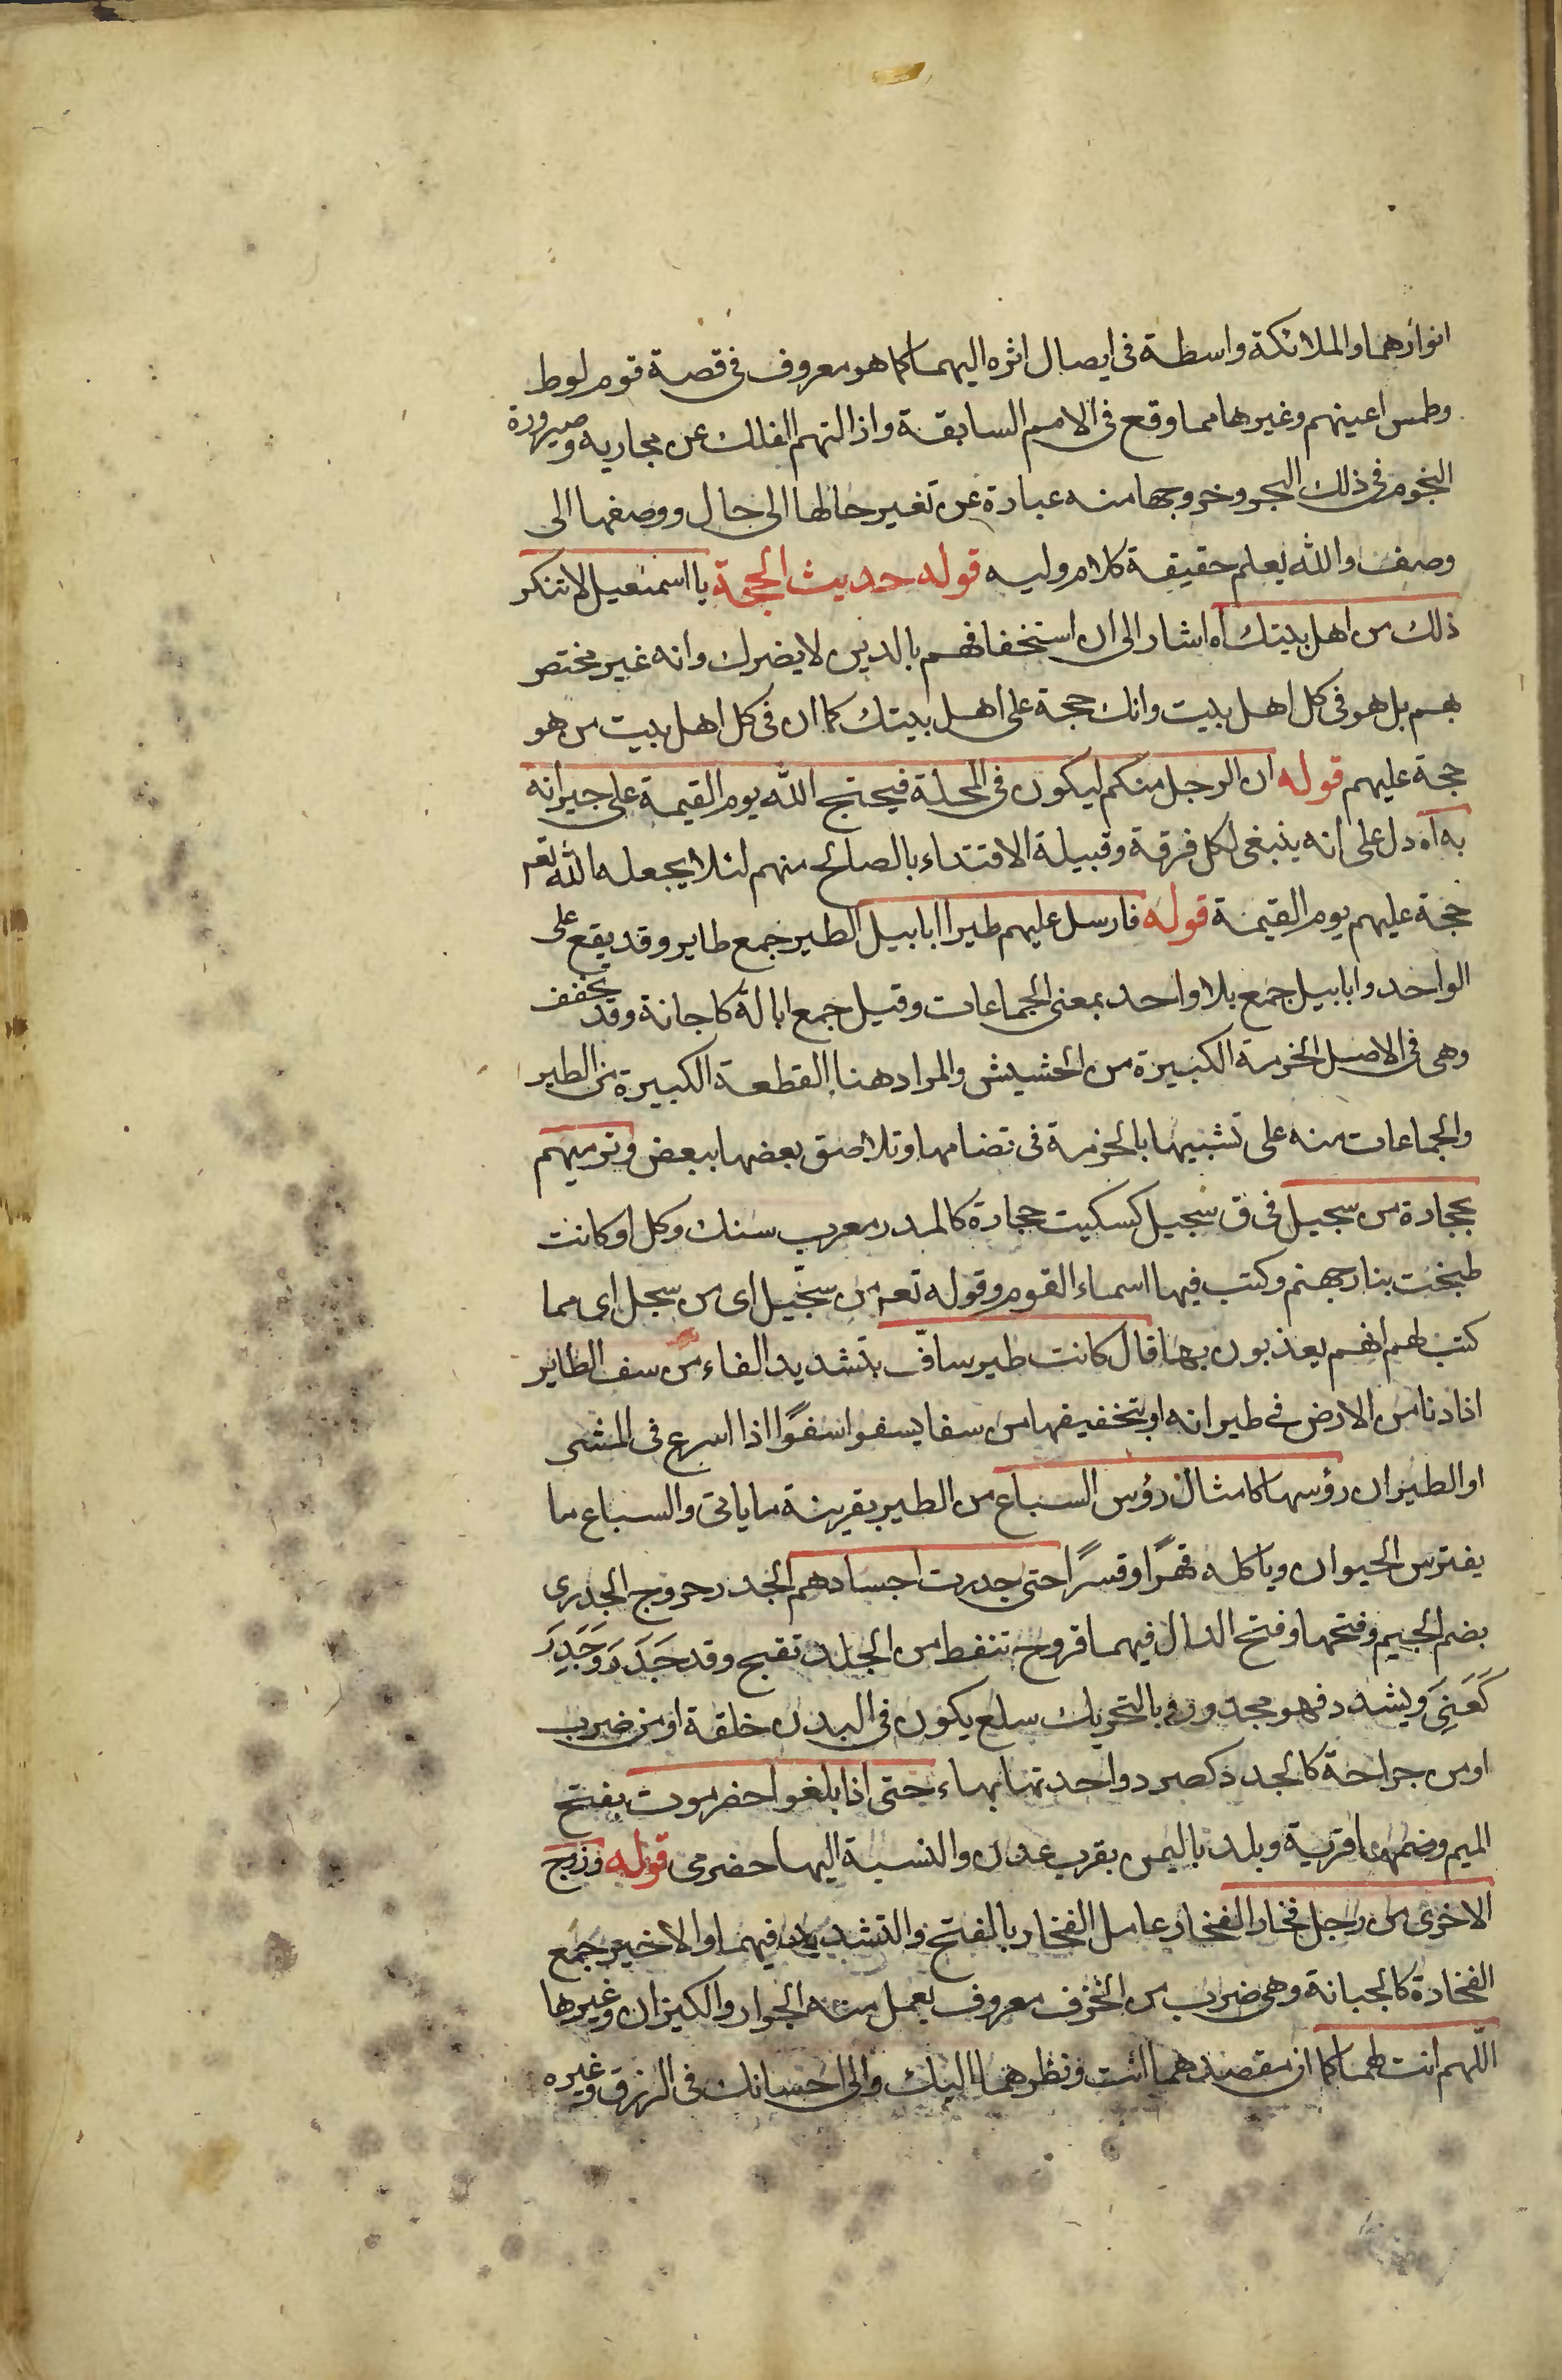 انوارهما والملائكة واسطة فى ايصال اثره اليهما كما هو معروف فى قصة قوم لوط
وطمس اعينهم وغيرها مما وقع فى الامم السابقة واذا التهم الفلك عن مجاريه وصيرورة
النجوم فى ذلك البحر وخروجها منه عبارة عن تغير حالها الى حال ووصفها الى
وصف والله يعلم حقيقة كلام وليه قوله حديث الحجة يا اسمعيل لا تنكر
ذلك من اهل بيتك اه اشار الى ان استخفافهم بالدين لا يضرك وانه غير مختص
بهم بل هو فى كل اهل بيت وانك حجة على اهل بيتك كما ان فى كل اهل بيت من هو
حجة عليهم قوله ان الرجل منكم ليكون فى المحلة فيحتج الله يوم القيمة على جيرانه
به اه دل على انه ينبغى لكل فرقة وقبيلة الاقتداء بالصالح منهم لئلا يجعله الله تعه
حجة عليهم يوم القيمة قوله فارسل عليهم طيرا ابابيل الطير جمع طاير وقد يقع على
الواحد وابابيل جمع بلا واحد بمعنى الجماعات وقيل جمع ابالة كاجانة وقد تخفف
وهى فى الاصل الحزمة الكبيرة من الحشيش والمراد هنا القطعة الكبيرة من الطير
والجماعات منه على تشبيهها بالحزمة فى تضامها وتلاصق بعضها ببعض وترميهم
بحجارة من سجيل فى ق سجيل كسكيت حجارة كالمدر معرب سنك وكل او كانت
طبخت بنار جهنم وكتب فيها اسماء القوم وقوله تعه من سجّيل اى من سجل اى مما
كتب لهم انهم يعذبون بها قال كانت طير سافّ بتشديد الفاء من سف الطاير
اذا دنا من الارض فى طيرانه او بتخفيفها من سفا يسفوا سفوًا اذا اسرع فى المشى
او الطيران رؤسها كامثال رؤس السباع من الطير بقرينة ما ياتى والسباع ما
يفترس الحيوان وياكله قهرًا وقسرًا حتى جدرت اجسادهم الجدر خروج الجدرى
بضم الجيم وفتحها وفتح الدال فيهما قروح تنفط من الجلد تقيح وقد جَدَرَ وجَدِرَ
كَعَنِىَ ويشدد فهو مجدور وبالتحريك سلع يكون فى البدن خلقة او من ضرب
او من جراحة كالجدد كصرد واحدتها بهاء حتى اذا بلغوا حضرموت بفتح
الميم وضمها قرية وبلد باليمن بقرب عدن والنسبة اليها حضرمى قوله وزوج
الاخرى من رجل فخار الفخار عامل الفخار بالفتح والتشديد فيهما والاخير جمع
الفخارة كالجبانة وهى ضرب من الخزف معروف يعمل منه الجرار والكيزان وغيرها
اللّهم انت لهما كما ان مقصدهما انت ونظرهما اليك والى احسانك فى الرزق وغيره